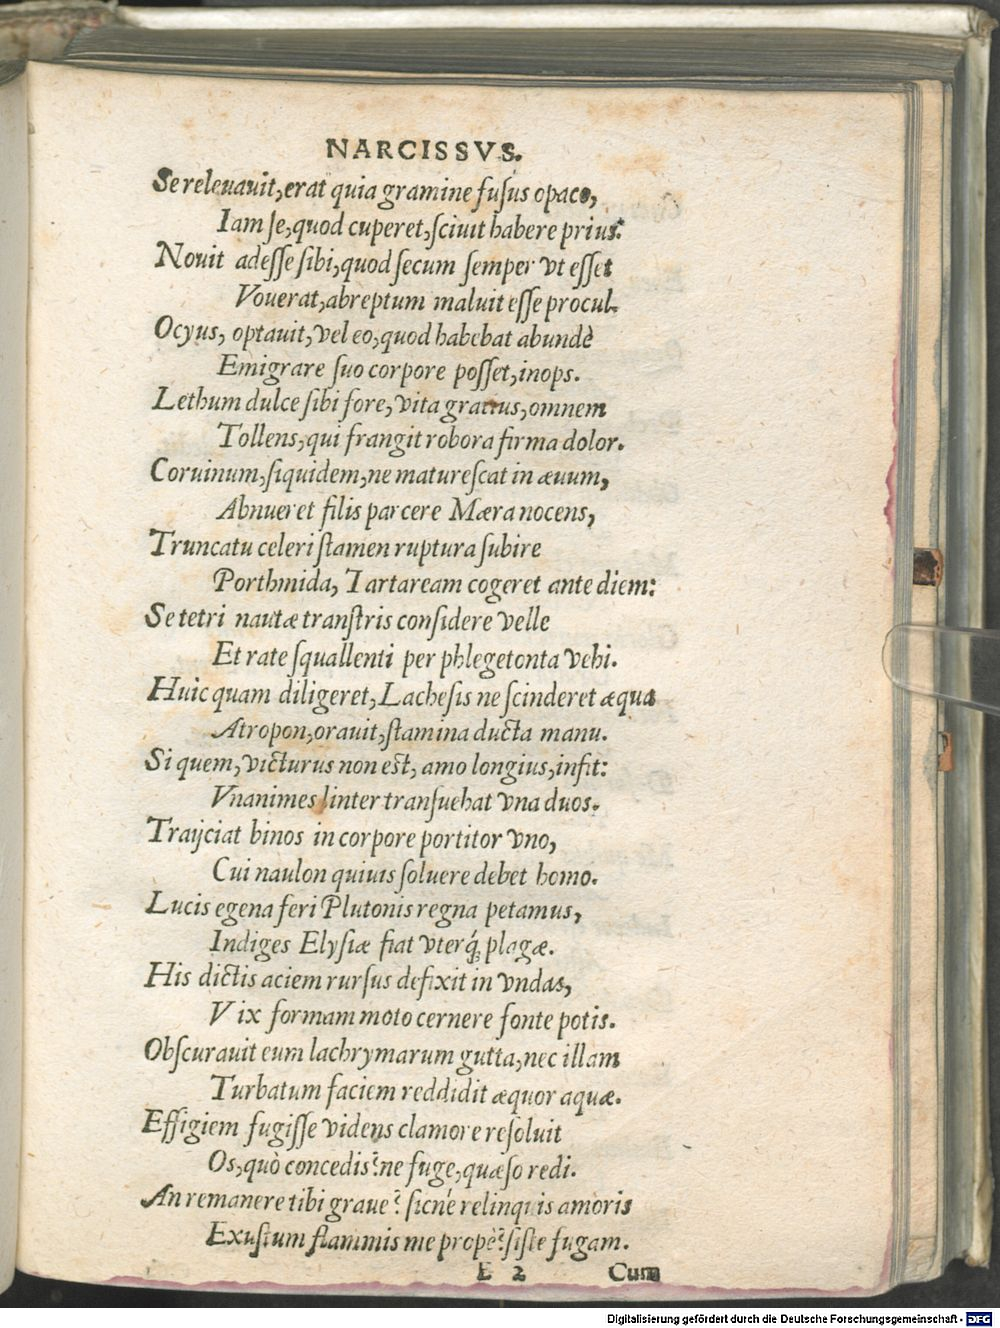 NARCISSVS.
Se releuauit, erat quia gramine fuſus opaco,
Iam ſe, quod cuperet, ſciuit habere prius.
Nouit adeſſe ſibi, quod ſecum ſemper vt eſſet
Vouerat, abreptum maluit eſſe procul.
Ocyus, optauit, vel eo, quod habebat abundè
Emigrare ſuo corpore poſſet, inops.
Lethum dulce ſibi fore, vita gratius, omnem
Tollens, qui frangit robora firma dolor.
Coruinum, ſiquidem, ne matureſcat in æuum,
Abnueret filis parcere Mæra nocens,
Truncatu celeri ſtamen ruptura ſubire
Porthmida, Tartaream cogeret ante diem:
Se tetri nautæ tranſtris conſidere velle
Et rate ſquallenti per phlegetonta vehi.
Huic quam diligeret, Lacheſis ne ſcinderet æqua
Atropon, orauit, ſtamina ducta manu.
Si quem, victurus non est, amo longius, infit:
Vnanimes linter tranſuehat vna duos.
Traijciat binos in corpore portitor vno,
Cui naulon quiuis ſoluere debet homo.
Lucis egena feri Plutonis regna petamus,
Indiges Elyſiæ fiat vterq́; plagæ.
His dictis aciem rurſus defixit in vndas,
Vix formam moto cernere fonte potis.
Obſcurauit eum lachrymarum gutta, nec illam
Turbatum faciem reddidit æquor aquæ.
Effigiem fugiſſe videns clamore reſoluit
Os, quò concedis? ne fuge, quæſo redi.
An remanere tibi graue? ſicne relinquis amoris
Exuſtum flammis me propè? ſiſte fugam.
E 2 Cum
Digitalisierung gefördert durch die Deutsche Forschungsgemeinschaft - DFG